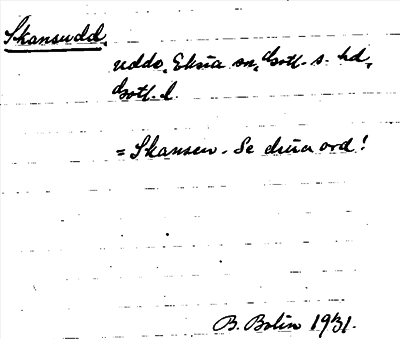 Skansudd,
udde, Eksta sn, Gotl. s. hd,
Gotl. l.
= Skansen. Se dessa ord!
B. Bolin 1931.